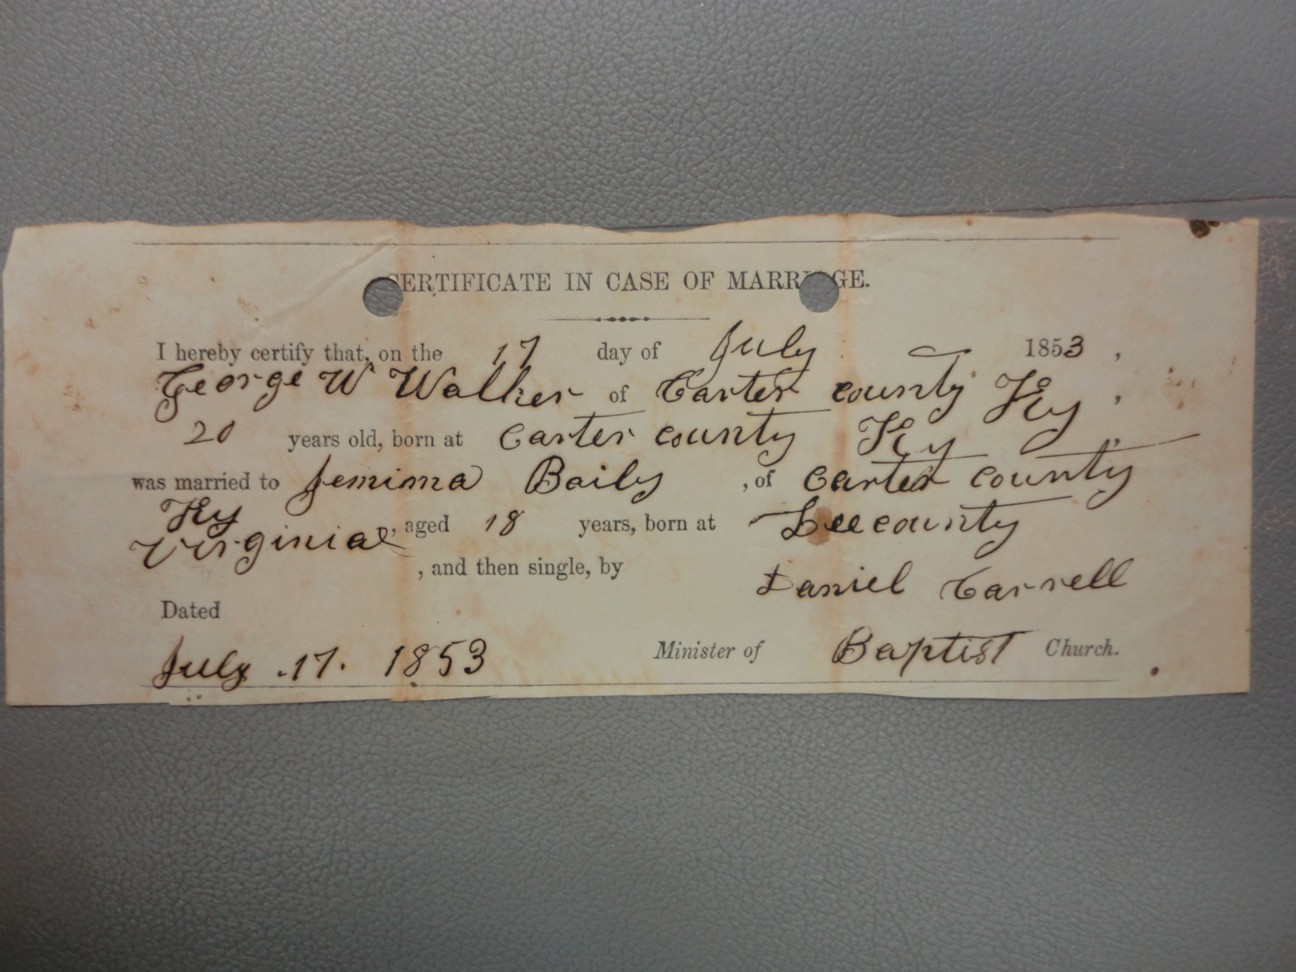 CERTIFICATE IN CASE OF MARRIAGE.
I hereby certify that, on the 17 day of July 1853,
George W Walker of Carter county Ky,
20 years old, born at Carter county Ky,
was married to Jemima Baily, of Carter county
Ky, aged 18 years, born at Lee county
Virginia, and then single, by
Daniel Carrell
Dated
July .17. 1853 Minister of Baptist Church.